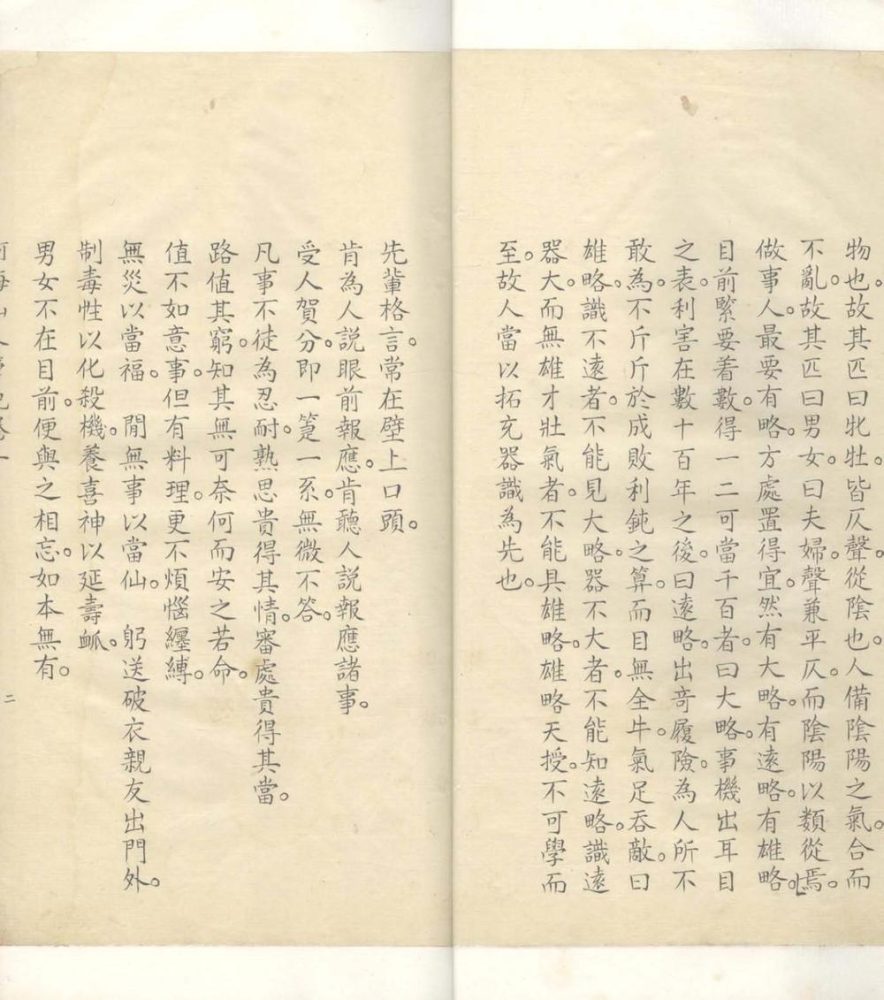 物也。故其匹曰牝牡。皆仄聲。從陰也。人備陰陽之氣。合而
不亂。故其匹曰男女。曰夫婦。聲兼平仄。而陰陽以類從焉。
做事人。最要有略。方處置得宜。然有大略。有遠略。有雄略。
目前緊要着數。得一二可當千百者。曰大略。事機出耳目
之表。利害在數十百年之後。曰遠略。出奇履險。為人所不
敢為。不斤斤於成敗利鈍之算。而目無全牛。氣足吞敵。曰
雄略。識不遠者。不能見大略。器不大者。不能知遠略。識遠
器大。而無雄才壯氣者。不能具雄略。雄略天授。不可學而
至。故人當以拓充器識為先也。
先輩格言。常在壁上口頭。
肯為人説眼前報應。肯聽人説報應諸事。
受人賀分。即一箑一系。無微不答。
凡事不徒為忍耐。熟思貴得其情。審處貴得其當。
路值其窮。知其無可奈何而安之若命。
值不如意事。但有料理。更不煩惱纏縛。
無災以當福。閒無事以當仙。躬送破衣親友出門外。
制毒性以化殺機。養喜神以延壽衇。
男女不在目前。便與之相忘。如本無有。
二